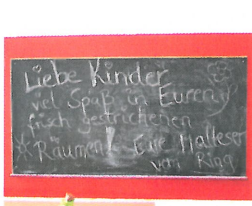 Liebe Kinder
viel Spaß in Euren
frisch gestrichenen
Räumen! Eure Malteser
vom Ring